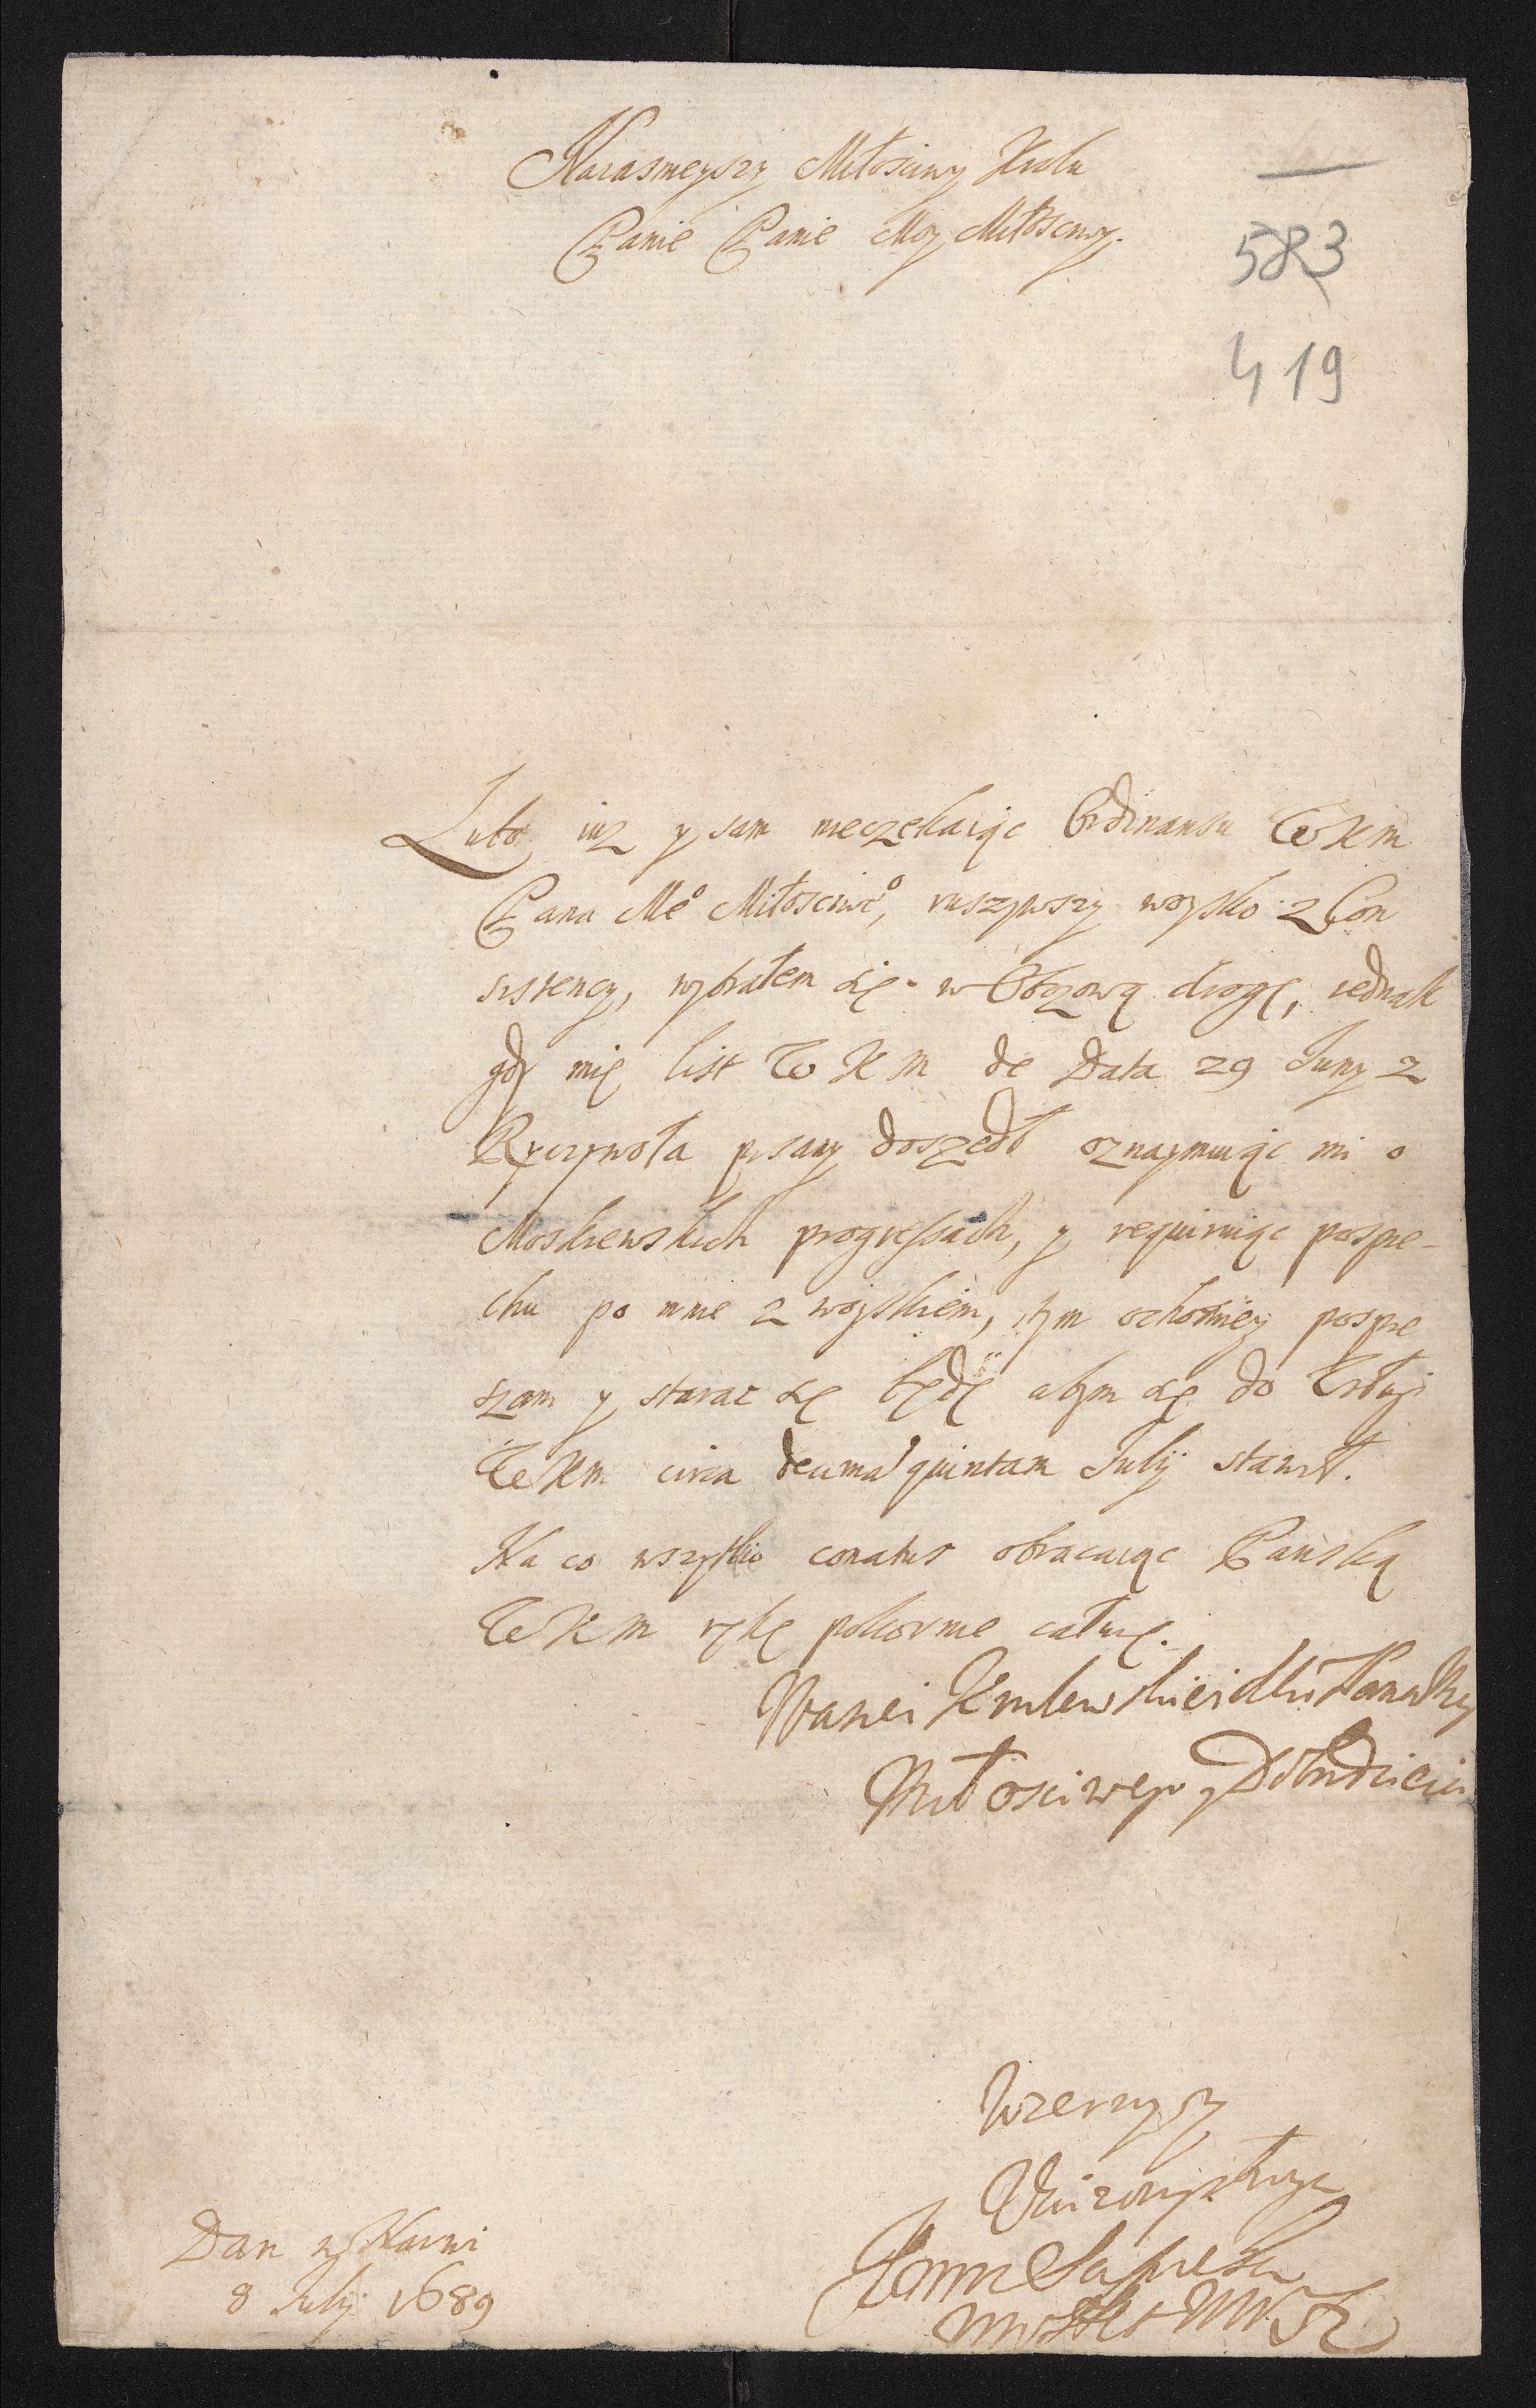 Naiasnieyszy Miłosciwy Krolu
583
Panie Panie Moy Miłosciwy.
419
Lubo iuz y sam nieczekaiąc Ordinansu WKM
Pana Meo Miłosciweo, ruszywszy woysko z Con
sistency, wybrałem się w Obozową drogę, iednak
gdy mię list WKM de Data 29 Juny z
Ryczywoła pisany doszedł oznaymuiąc mi o
Moskiewskich progressach, y requiruiąc pospie-
chu po mnie z woyskiem, tym ochotniey pospie
szam y starac się będę abym się do usług
WKM circa decima quintam Julij stawił.
Na co wszytkie conatus obracaiąc Panską
WKM rękę pokornie całuię.
Waszei Krolewskiei Msci Pana Me
Miłosciwego y Dobrodzieia
Wierny
Unizony sługa
Sapieha
Dan w
8 Julij 1689